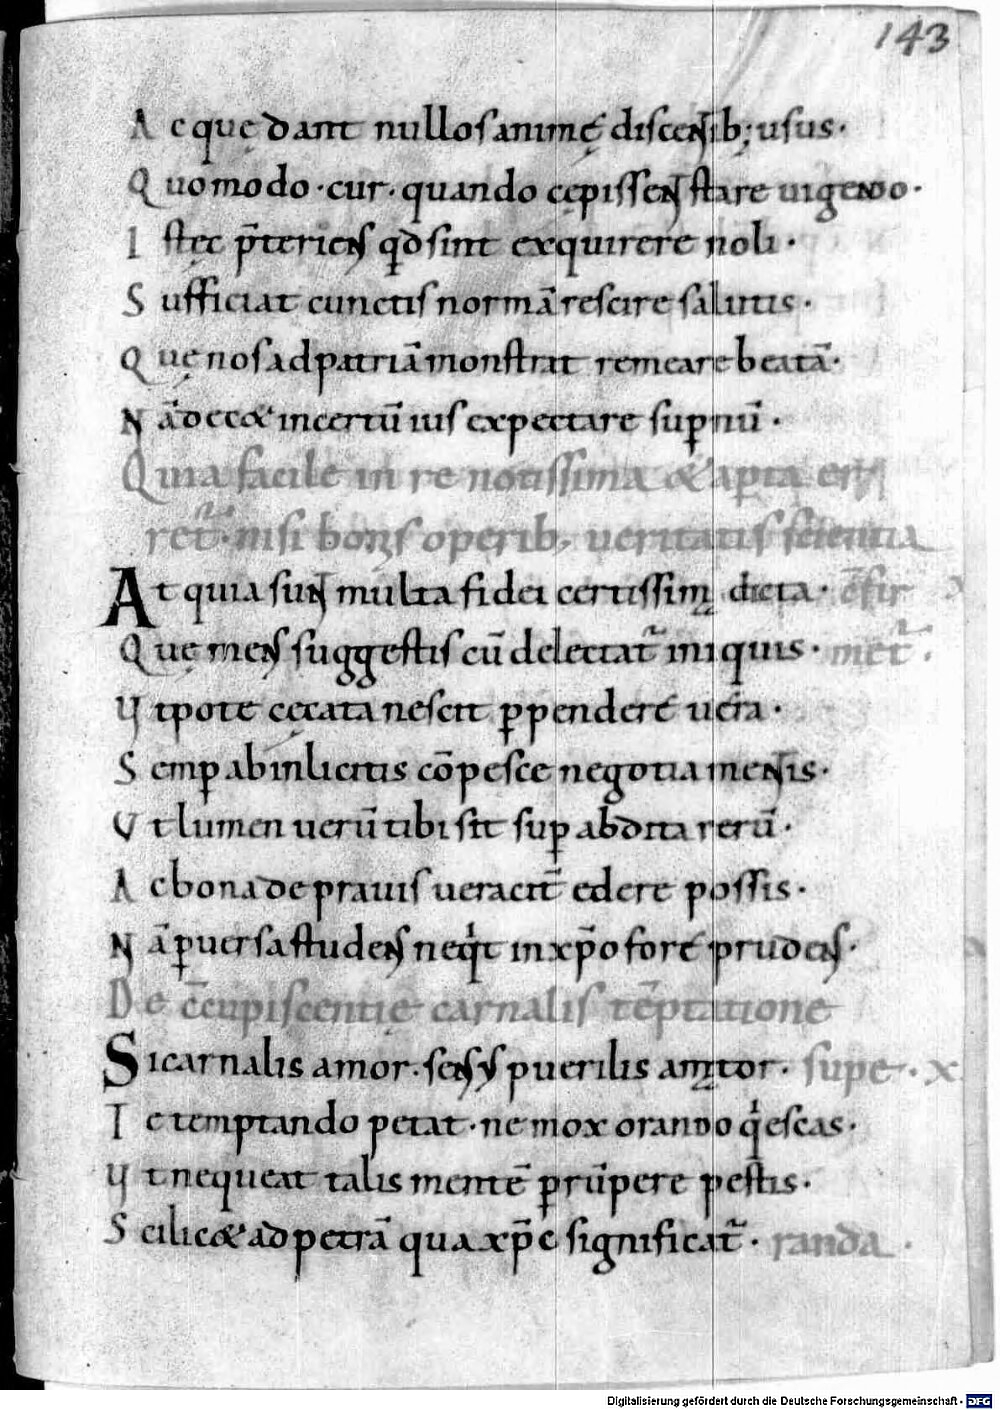 143
Ac quę dant nullos animę discentib; usus·
Quomodo · cur · quando cępissent stare uigendo·
Istęc p̄teriens qd sint exquirere noli·
Sufficiat cunctis normā rescire salutis·
Quę nos ad patriā monstrat remeare beatā·
Nā docet incertū ius expectare supnū·
Quia facile in re notissima & apta er
ret̄· nisi bonis operib; ueritatis scientia
At quia sunt multa fidei certissima dicta· c̄fir
Quę mens suggestis cū delectat̄ iniquis· met̄·
Vtpote cęcata nescit ppendere uera·
Semp ab inlicitis cōpesce negotia mentis·
Vt lumen uerū tibi sit sup abdita rerū·
Ac bona de prauis ueracit̄ edere possis·
Nā puersa studens neqit in xp̄o fore prudens·
De c̄cupiscentię carnalis tēptatione
Si carnalis amor · sensus puerilis amator· supe·
Te temptando petat · ne mox orando qiescas·
Vt nequeat talis mentē prūpere pestis·
Scilic& ad petrā qua xp̄c significat̄· randa·
Digitalisierung gefördert durch die Deutsche Forschungsgemeinschaft · DFG